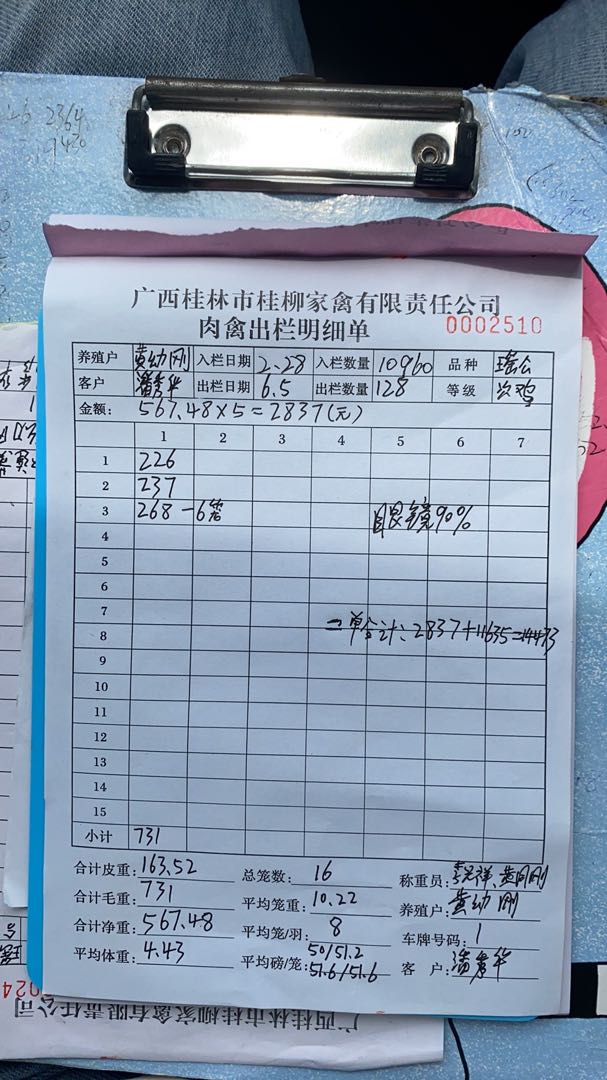 2364
1420
广西桂林市桂柳家禽有限责任公司
肉禽出栏明细单 0002510
养殖户 黄幼刚 入栏日期 2.28 入栏数量 10960 品种 瑶公
客户 潘秀华 出栏日期 6.5 出栏数量 128 等级 次鸡
金额: 567.48×5=2837(元)
1 2 3 4 5 6 7
1 226
2 237
3 268 -6笼 眼镜90%
4
5
6
7
8 二单合计:2837+11635=14473
9
10
11
12
13
14
15
小计 731
合计皮重:163.52 总笼数:16 称重员:
合计毛重:731 平均笼重:10.22 养殖户:黄幼刚
合计净重:567.48 平均笼/羽:8 车牌号码:1
平均体重:4.43 平均磅/笼:50/51.2 51.6/51.6 客户:潘秀华
广西桂林市桂柳家禽有限责任公司